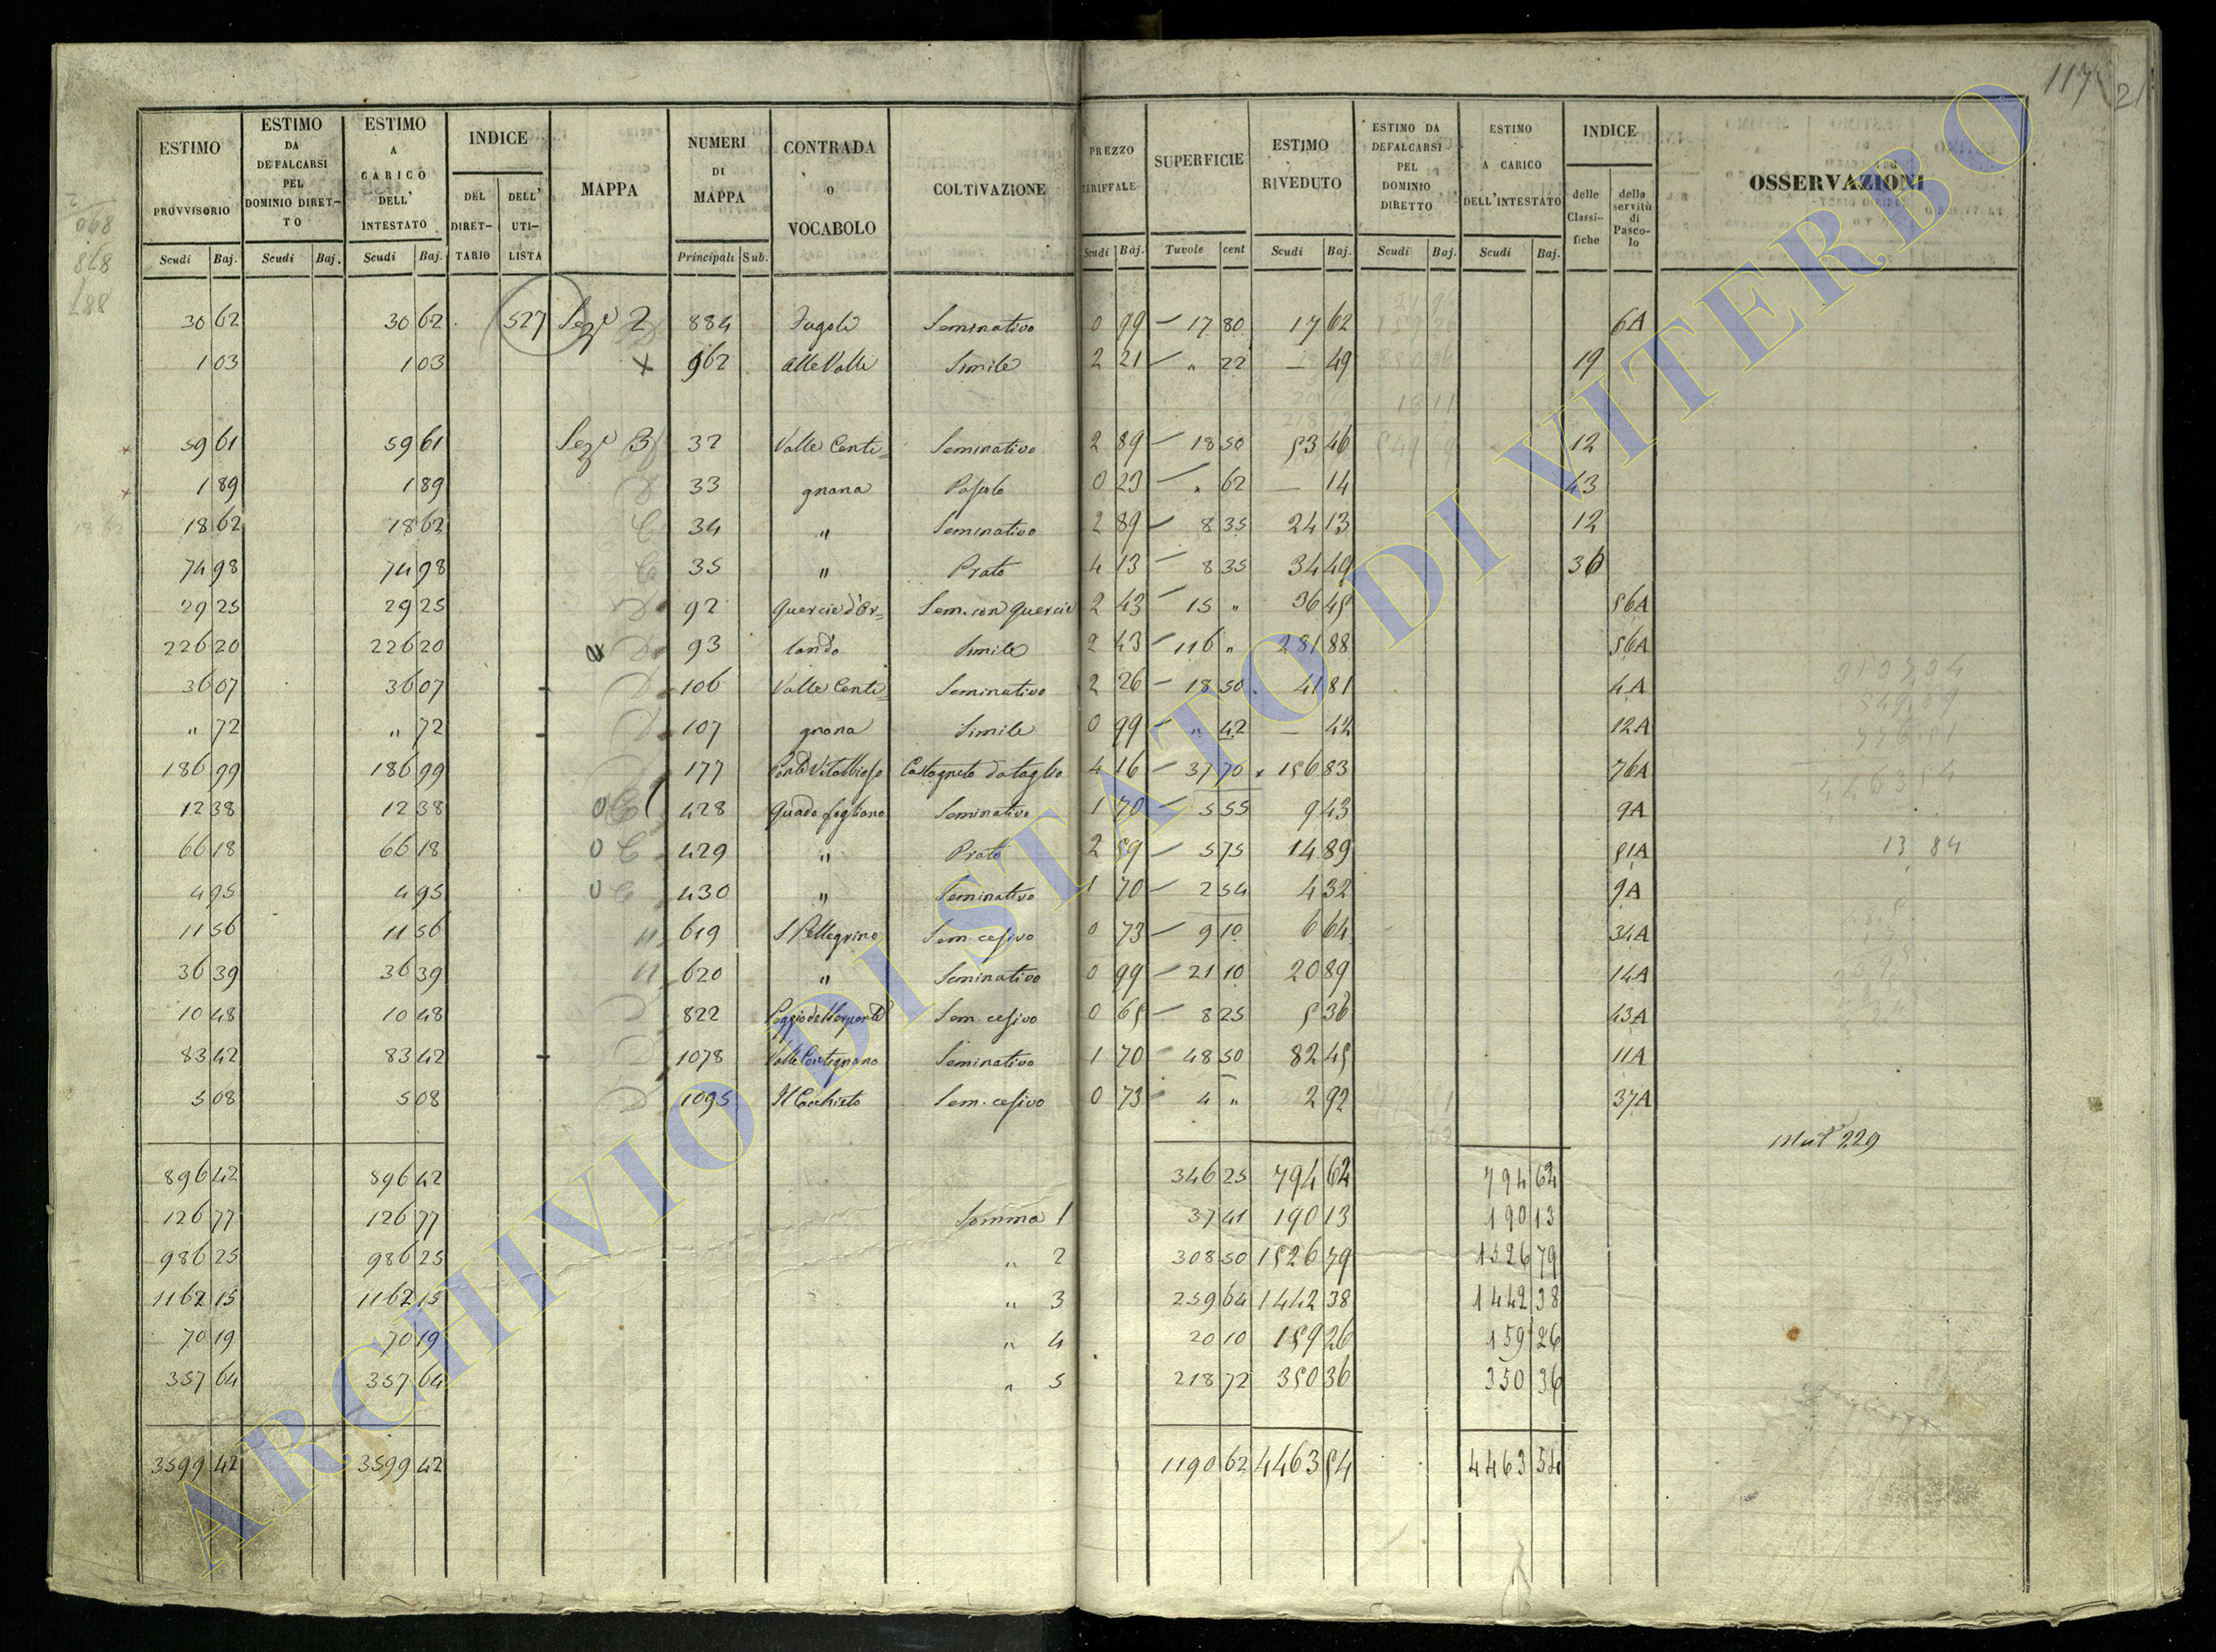 117 21
ESTIMO PROVVISORIO | ESTIMO DA DEFALCARSI PEL DOMINIO DIRETTO | ESTIMO A CARICO DELL' INTESTATO | INDICE | MAPPA | NUMERI DI MAPPA | CONTRADA O VOCABOLO | COLTIVAZIONE | PREZZO TARIFFALE | SUPERFICIE | ESTIMO RIVEDUTO | ESTIMO DA DEFALCARSI PEL DOMINIO DIRETTO | ESTIMO A CARICO DELL'INTESTATO | INDICE | OSSERVAZIONI
DEL DIRETTARIO | DELL' UTILISTA | delle Classifiche | della servitù di Pascolo
Scudi Baj. | Scudi Baj. | Scudi Baj. | Principali Sub. | Scudi Baj. | Tavole cent | Scudi Baj. | Scudi Baj. | Scudi Baj.
30 62 | 30 62 | 527 | Sez.e 2 | 884 | Fugoli | Seminativo | 0 99 | 17 80 | 17 62 | 6A
1 03 | 1 03 | x | 962 | alle Valle | Simile | 2 21 | " 22 | — 49 | 19
59 61 | 59 61 | Sez.e 3 | 32 | Valle Centi= | Seminativo | 2 89 | 18 50 | 53 46 | 12
1 89 | 1 89 | 33 | gnana | Pascolo | 0 23 | " 62 | — 14 | 43
18 62 | 18 62 | 34 | " | Seminativo | 2 89 | 8 35 | 24 13 | 12
74 98 | 74 98 | 35 | " | Prato | 4 13 | 8 35 | 34 49 | 36
29 25 | 29 25 | 92 | Quercie d'Or= | Sem. con quercie | 2 43 | 15 " | 36 45 | 56A
226 20 | 226 20 | 93 | lando | Simile | 2 43 | 116 " | 281 88 | 56A
36 07 | 36 07 | 106 | Valle Centi= | Seminativo | 2 26 | 18 50 | 41 81 | 4A
" 72 | " 72 | 107 | gnana | Simile | 0 99 | " 42 | — 42 | 12A
186 99 | 186 99 | 177 | Castagneto da taglio | 4 16 | 37 70 | 156 83 | 76A
12 38 | 12 38 | 428 | Guado fogliano | Seminativo | 1 70 | 5 55 | 9 43 | 9A
66 18 | 66 18 | 429 | " | Prato | 2 59 | 5 75 | 14 89 | 51A
4 95 | 4 95 | 430 | " | Seminativo | 1 70 | 2 54 | 4 32 | 9A
11 56 | 11 56 | 619 | S Pellegrino | Sem. cesivo | 0 73 | 9 10 | 6 64 | 34A
36 39 | 36 39 | 620 | " | Seminativo | 0 99 | 21 10 | 20 89 | 14A
10 48 | 10 48 | 822 | Sem. cesivo | 0 65 | 8 25 | 5 36 | 43A
83 42 | 83 42 | 1078 | Valle Centignana | Seminativo | 1 70 | 48 50 | 82 45 | 11A
5 08 | 5 08 | 1095 | Il Cerchieto | Sem. cesivo | 0 73 | 4 " | 2 92 | 37A
13 84
Mut.e 229
896 42 | 896 42 | 346 25 | 794 62 | 794 62
126 77 | 126 77 | Somma 1 | 37 41 | 190 13 | 190 13
986 25 | 986 25 | " 2 | 308 50 | 1526 79 | 1526 79
1162 15 | 1162 15 | " 3 | 259 64 | 1442 38 | 1442 38
70 19 | 70 19 | " 4 | 20 10 | 159 26 | 159 26
357 64 | 357 64 | " 5 | 218 72 | 350 36 | 350 36
3599 42 | 3599 42 | 1190 62 | 4463 54 | 4463 54
ARCHIVIO DI STATO DI VITERBO